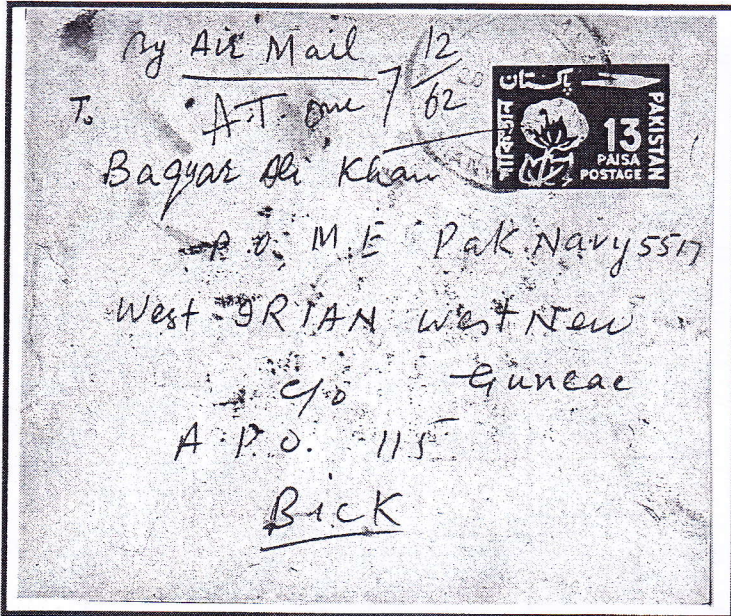 By Air Mail
A.T. one 7 12/62
To
Baqyar Ali Khan
P.O. M.E Pak. Navy 5517
West IRIAN West New
c/o Guneae
A.P.O. 115
Bick
پاکستان
পাকিস্তান
PAKISTAN
13
PAISA
POSTAGE